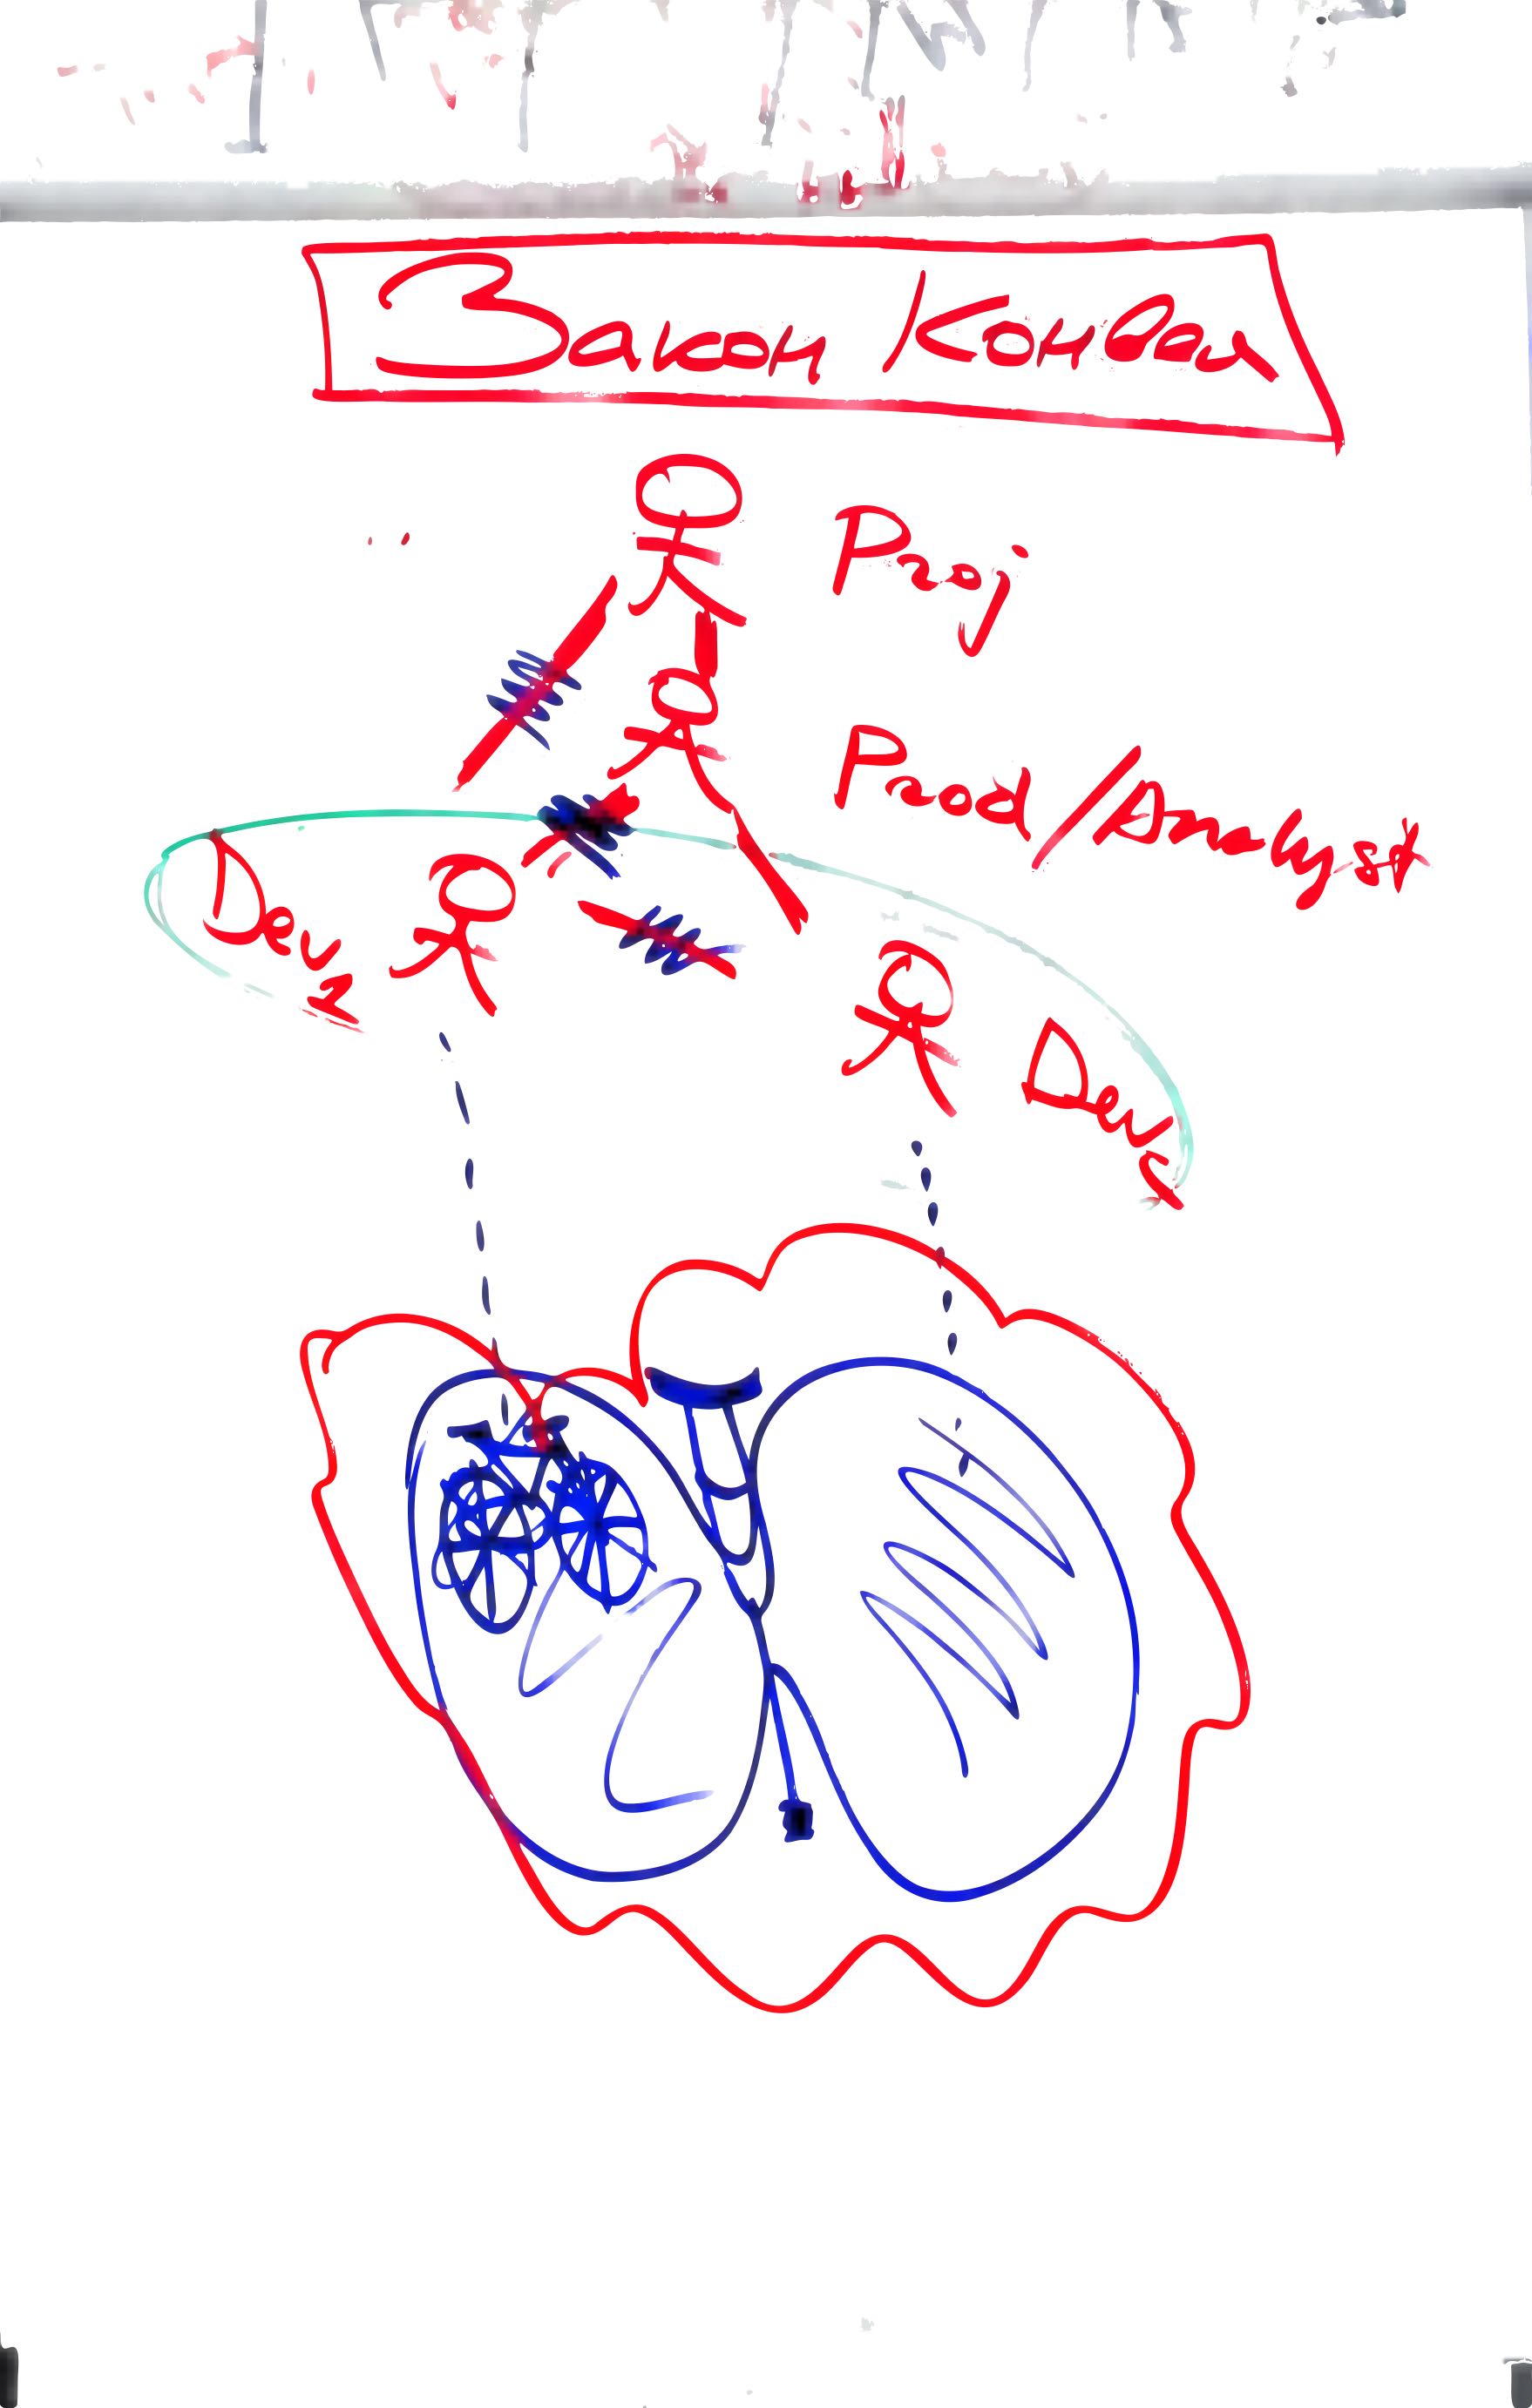 Закон Конвея
Proj
Prod/Analyst
Dev 1
Dev 2